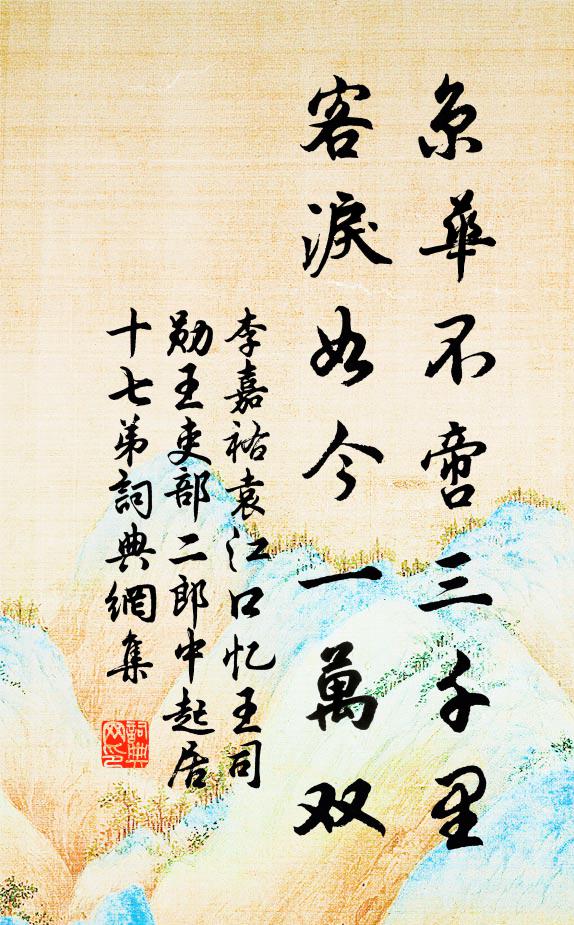 京華不啻三千里
客淚如今一萬双
李嘉祐袁江口忆王司
勋王吏部二郎中起居
十七弟詞典網集